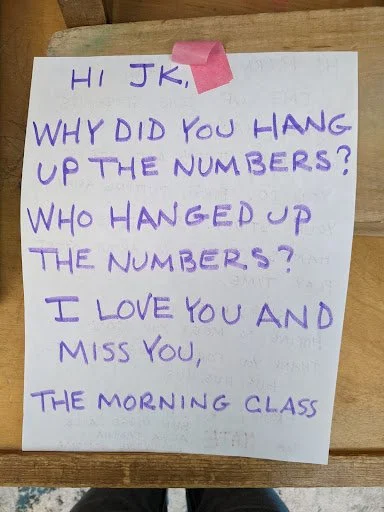 HI JK,
WHY DID YOU HANG
UP THE NUMBERS?
WHO HANGED UP
THE NUMBERS?
I LOVE YOU AND
MISS YOU,
THE MORNING CLASS